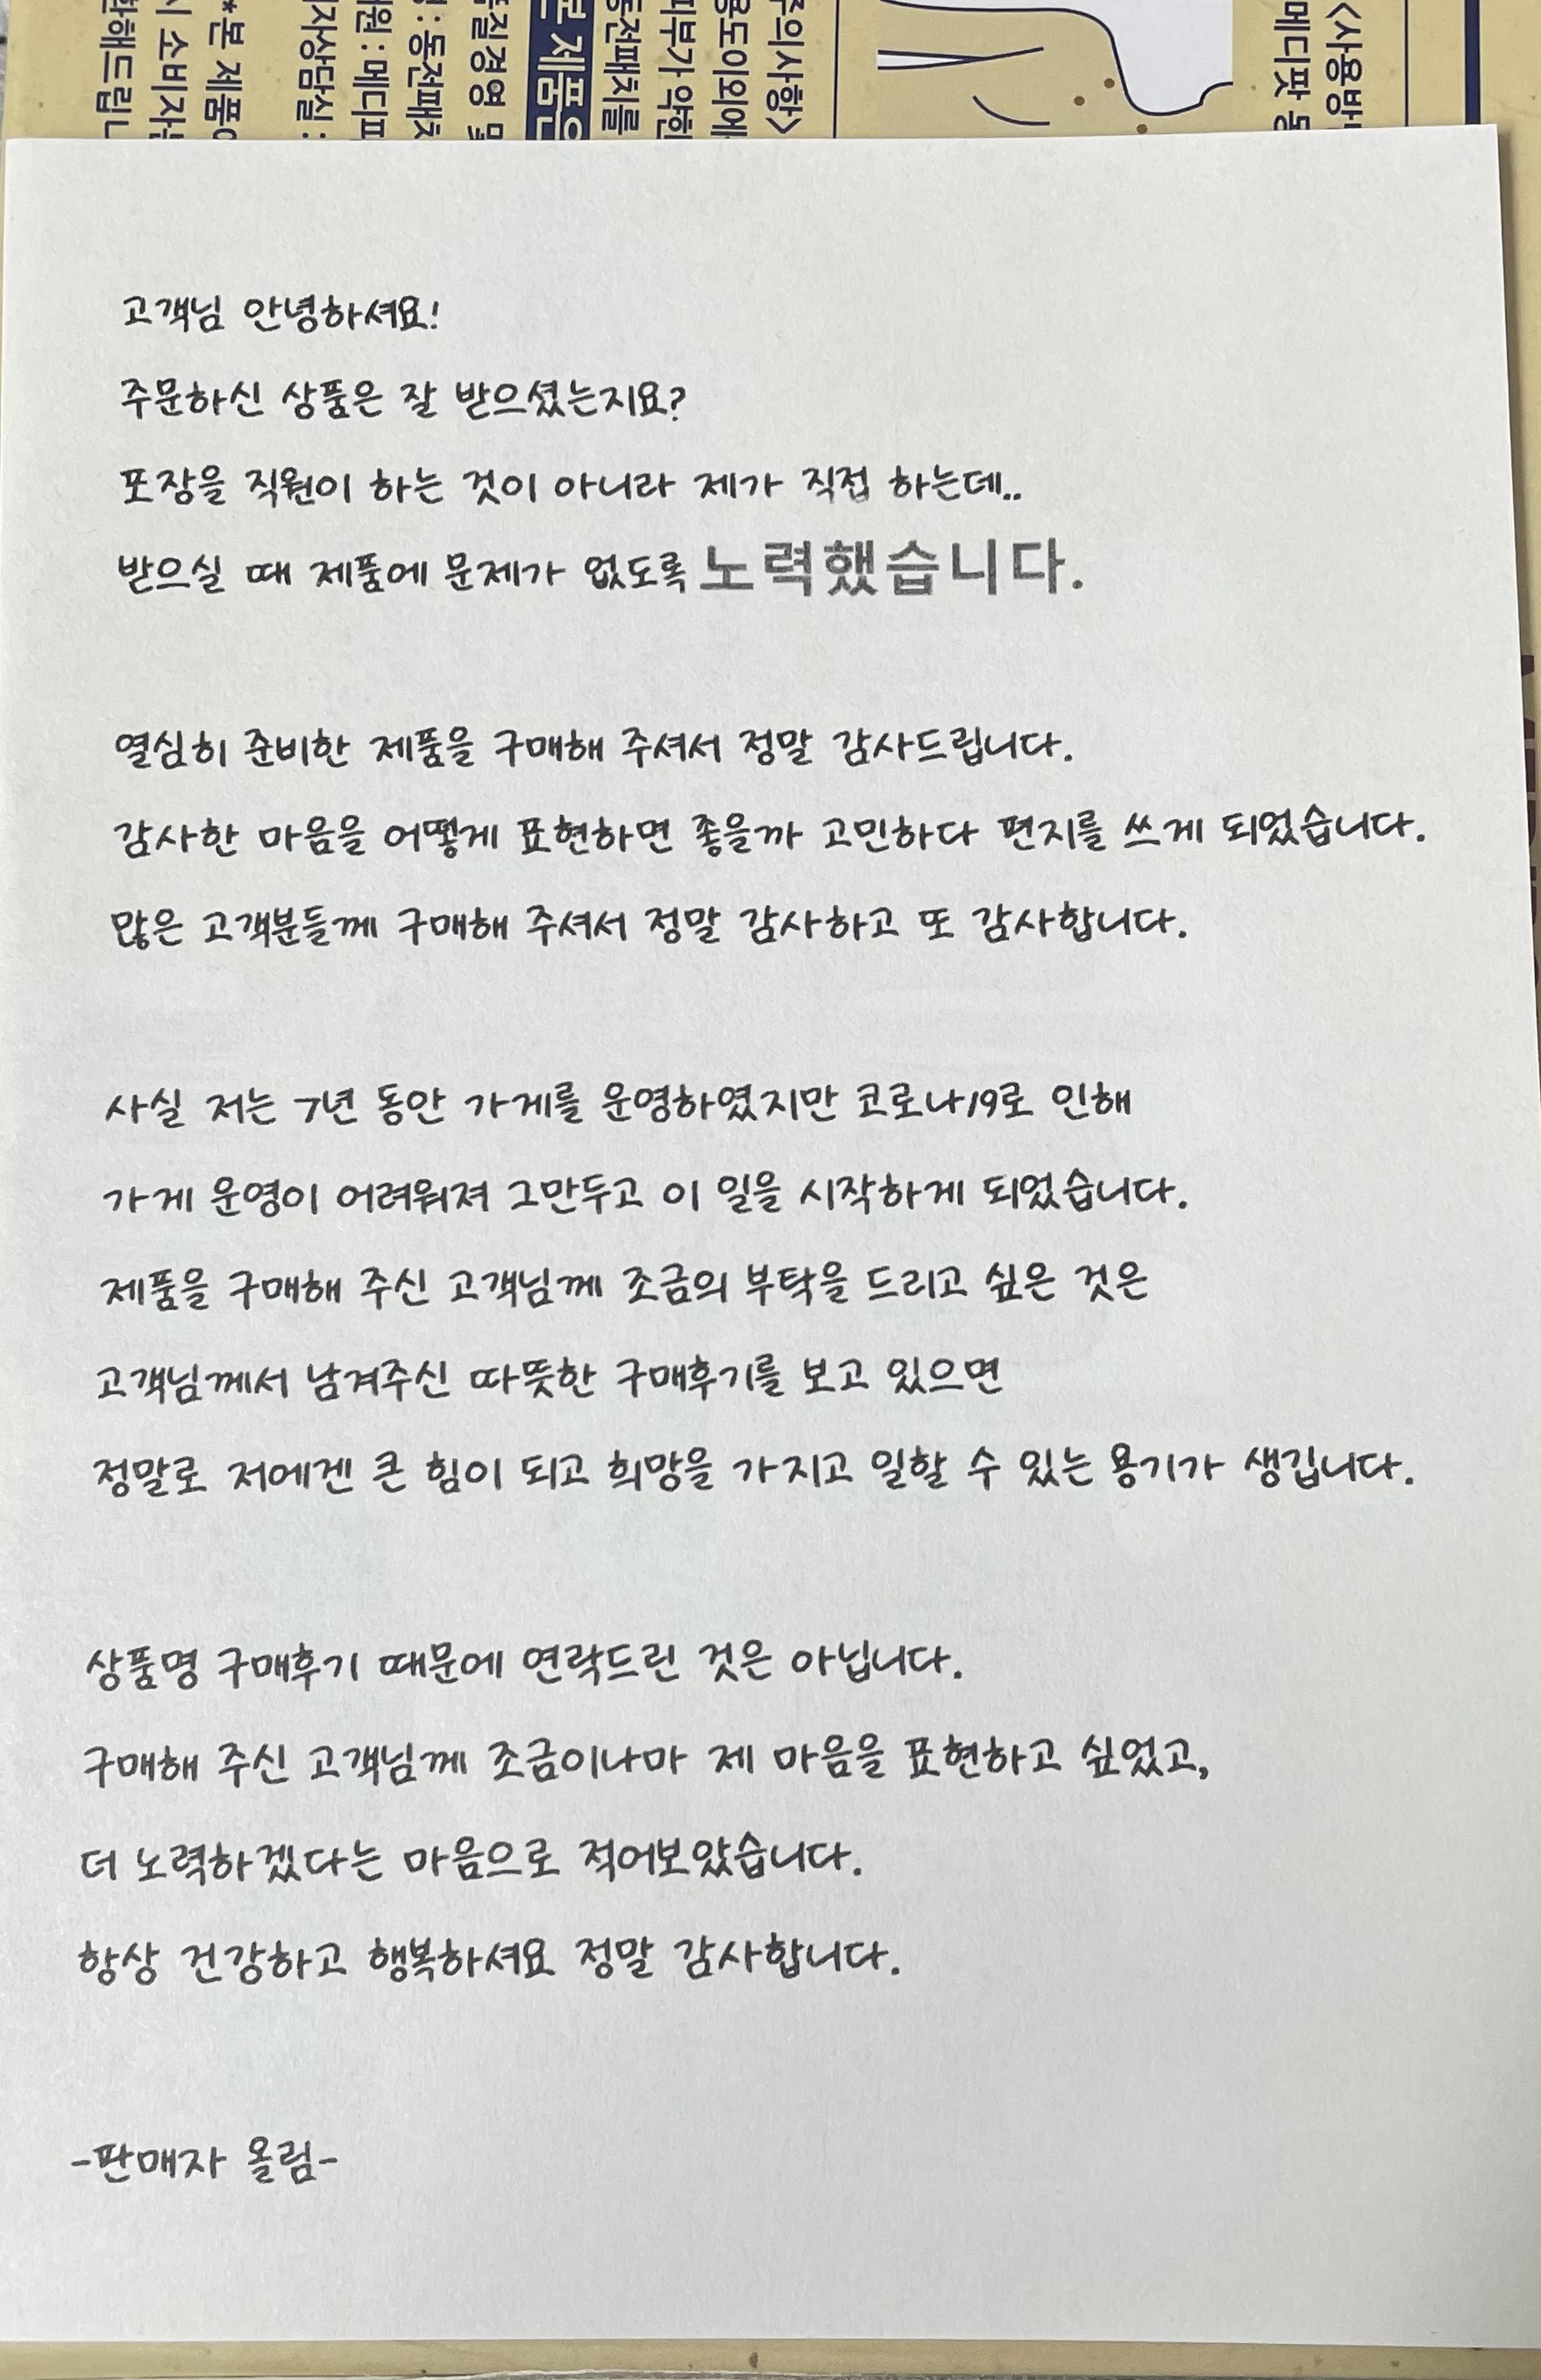 <사용방
메디팟 동
주의사항>
용도이외에
피부가 약한
동전패치를
본 제품은
품질경영 및
: 동전패치
원 : 메디파
자상담실 :
*본 제품
시 소비자
환해드립니
고객님 안녕하셔요!
주문하신 상품은 잘 받으셨는지요?
포장을 직원이 하는 것이 아니라 제가 직접 하는데..
받으실 때 제품에 문제가 없도록 노력했습니다.
열심히 준비한 제품을 구매해 주셔서 정말 감사드립니다.
감사한 마음을 어떻게 표현하면 좋을까 고민하다 편지를 쓰게 되었습니다.
많은 고객분들께 구매해 주셔서 정말 감사하고 또 감사합니다.
사실 저는 7년 동안 가게를 운영하였지만 코로나19로 인해
가게 운영이 어려워져 그만두고 이 일을 시작하게 되었습니다.
제품을 구매해 주신 고객님께 조금의 부탁을 드리고 싶은 것은
고객님께서 남겨주신 따뜻한 구매후기를 보고 있으면
정말로 저에겐 큰 힘이 되고 희망을 가지고 일할 수 있는 용기가 생깁니다.
상품명 구매후기 때문에 연락드린 것은 아닙니다.
구매해 주신 고객님께 조금이나마 제 마음을 표현하고 싶었고,
더 노력하겠다는 마음으로 적어보았습니다.
항상 건강하고 행복하셔요 정말 감사합니다.
-판매자 올림-